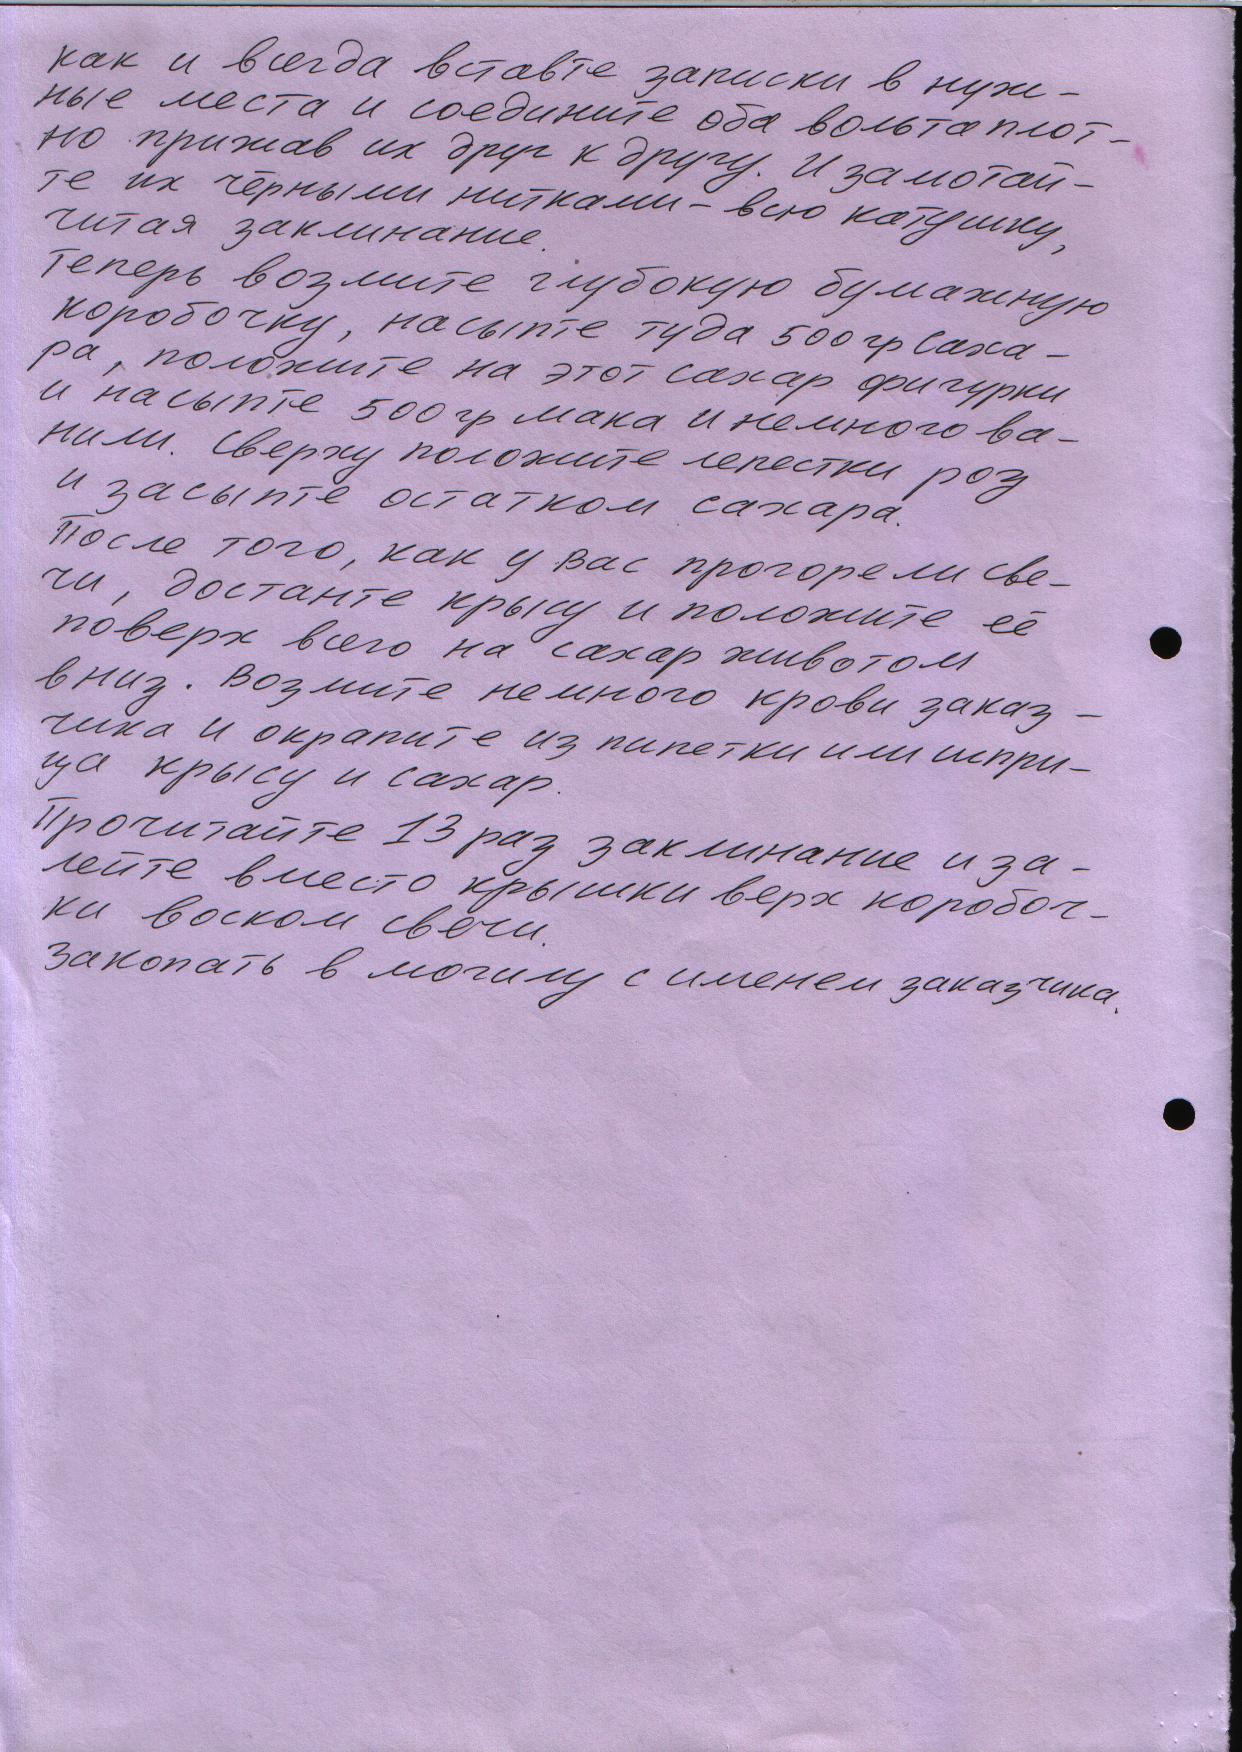 как и всегда вставте записки в нуж-
ные места и соедините оба вольта плот-
но прижав их друг к другу. И замотай-
те их чёрными нитками – всю катушку,
читая заклинание.
Теперь возмите глубокую бумажную
коробочку, насыпте туда 500 гр саха-
ра, положите на этот сахар фигурки
и насыпте 500 гр мака и немного ва-
нили. Сверху положите лепестки роз
и засыпте остатком сахара.
После того, как у Вас прогорели све-
чи, достанте крысу и положите её
поверх всего на сахар животом
вниз. Возмите немного крови заказ-
чика и окрапите из пипетки или шпри-
ца крысу и сахар.
Прочитайте 13 раз заклинание и за-
лейте вместо крышки верх коробоч-
ки воском свечи.
Закопать в могилу с именем заказчика.